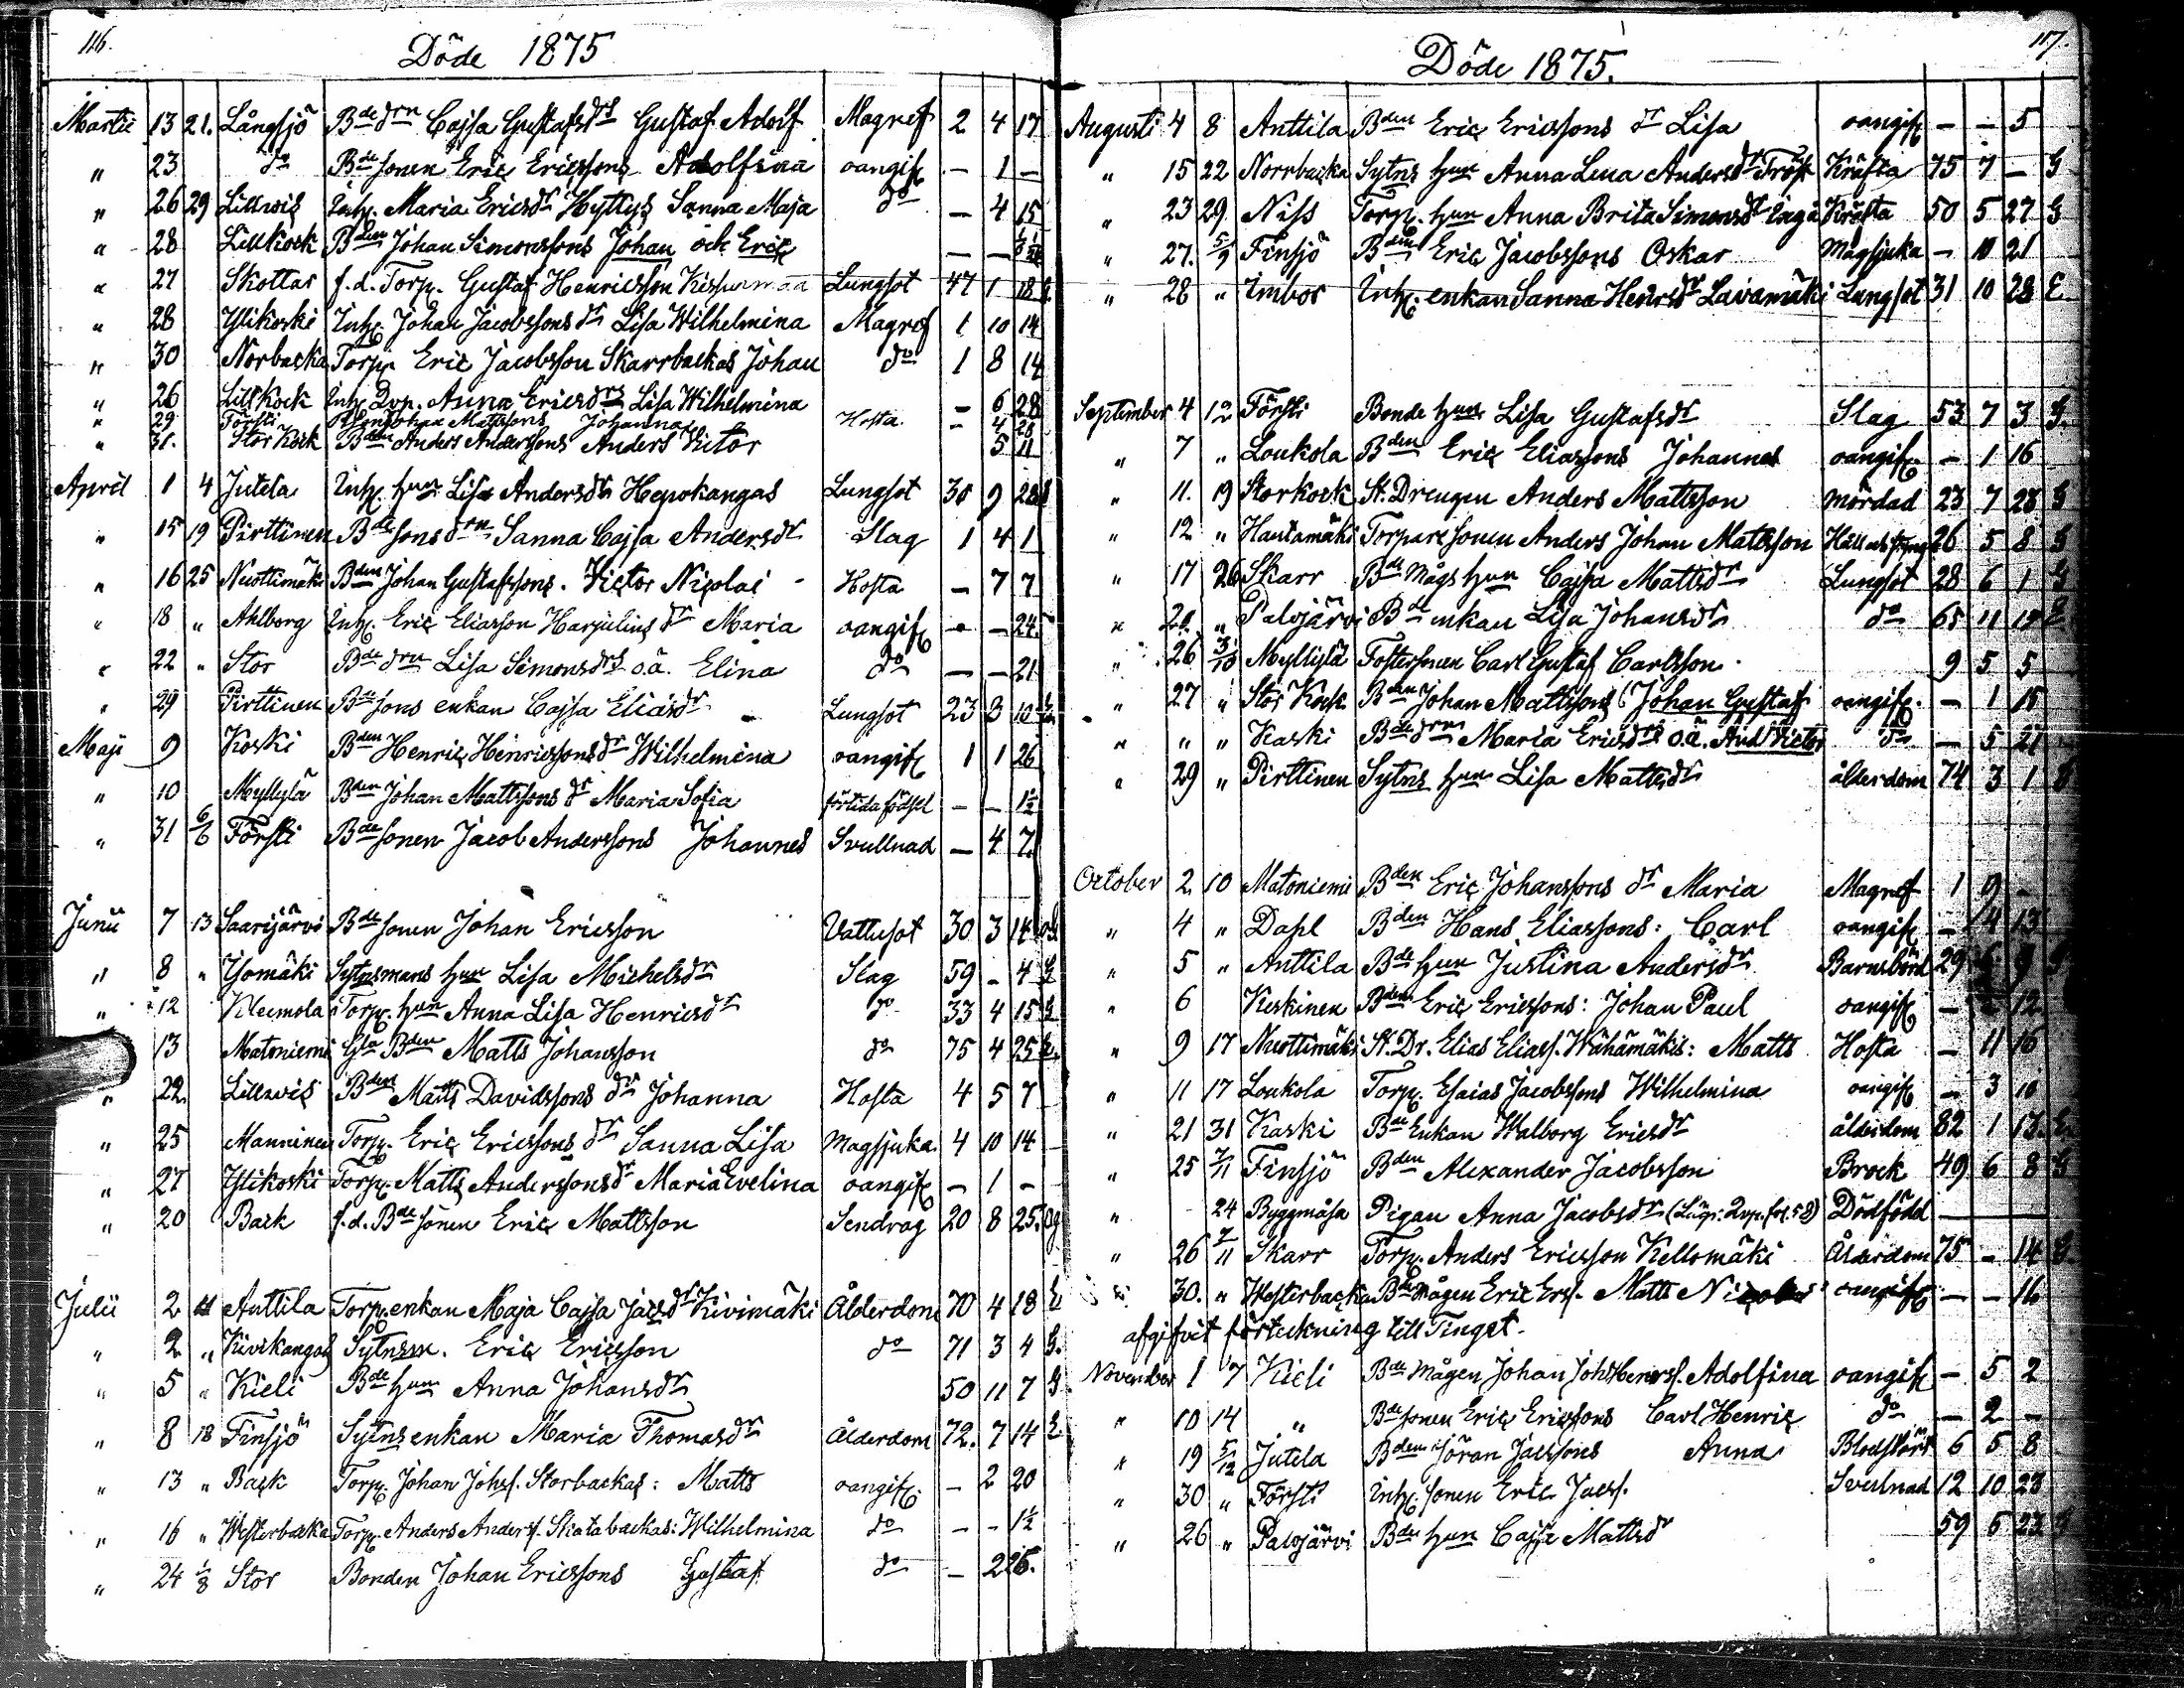 116.
Döde 1875
Martii 13 21. Långsjö Bde drn Cajsa Gustafsdrs Gustaf Adolf Magref 2 4 17
" 23 do Bde sonen Eric Ericssons Adolfina oangif. - 1 -
" 26 29 Lillwis Inh. Maria Ericsdr Hyttys Sanna Maja do - 4 15
" 28 Lillkock Bden Johan Simonssons Johan och Eric - -
" 27 Skottar f.d. Torp. Gustaf Henricsson Lungsot 47 1 18
" 28 Ylikoski Inh. Johan Jacobssons dr Lisa Wilhelmina Magref 1 10 14
" 30 Norbacka Torp. Eric Jacobsson Skarrbackas Johan do 1 8 14
" 26 Lillkock Inh. Anna Ericsdrs Lisa Wilhelmina - 6 28
" 29 Försti Bden Johan Mattssons Johanna Hosta - 4 28
" 31. Stor Kock Bden Anders Anderssons Anders Victor 5 11
April 1 4 Jutila Inh. hun Lisa Andersdr Hepokangas Lungsot 30 9 28
" 15 19 Pirttinen Bde sons drn Sanna Cajsa Andersdr Slag 1 4 1
" 16 25 Nuottimäki Bden Johan Gustafssons. Victor Nicolai - Hosta - 7 7
" 18 " Ahlborg Inh. Eric Eliasson Harjulins dr Maria oangif. - - 24.
" 22 " Stor Bde drn Lisa Simonsdrs o.ä. Elina do - - 21
" 29 Pirttinen Bde sons enkan Cajsa Eliasdr Lungsot 23 3
Maji 9 Koski Bden Henric Henricssons dr Wilhelmina oangif. 1 1 26
" 10 Myllylä Bden Johan Mattssons dr Maria Sofia förtida födsel - - 1½
" 31 6/6 Försti Bde sonen Jacob Anderssons Johannes Svullnad - 4 7.
Junii 7 13 Saarijärvi Bde sonen Johan Ericsson Vattusot 30 3 14 og
" 8 " Isomäki Sytnsmans hun Lisa Michelsdr Slag 59 - 4 G
" 12 Kleemola Torp. hun Anna Lisa Henricsdr do 33 4 15 G
13 Matoniemi Gla Bden Matts Johansson do 75 4 25
" 22. Lillwis Bden Matts Davidssons dr Johanna Hosta 4 5 7
" 25 Manninen Torp. Eric Ericssons dr Sanna Lisa Magsjuka 4 10 14 -
" 27 Ylikoski Torp. Matts Anderssons dr Maria Evelina oangif. - 1 -
" 20 Back f.d. Bde sonen Eric Mattsson Sendrag 20 8 25. og
Julii 2 11 Anttila Torp. enkan Maja Cajsa Jacsdr Kivimäki Ålderdom 70 4 18 E
" 2 " Kivikangas Sytnsm. Eric Ericsson do 71 3 4 G.
" 5 " Kieli Bde hun Anna Johansdr 50 11 7 G
" 8 18 Finsjö Sytns enkan Maria Thomasdr Ålderdom 72. 7 14 E
" 13 " Back Torp. Johan Johss. Storbackas: Matts oangif. - 2 20
" 16 " Westerbacka Torp. Anders Anderss. Skatabackas: Wilhelmina do - - 1½
" 24 1/8 Stor Bonden Johan Ericssons Gustaf do - 2 26.
117.
Döde 1875.
Augusti 4 8 Anttila Bden Eric Ericssons dr Lisa oangif. - - 5
" 15 22 Norrbacka Sytns hun Anna Lena Andersdr Kräfta 75 7 - G
" 23 29. Niss Torp. hun Anna Brita Simonsdr Kräfta 50 5 27 G
" 27. 5/9 Finsjö Bden Eric Jacobssons Oskar Magsjuka - 10 21
" 28 " Imbor Inh. enkan Sanna Henrsdr Laivamäki Lungsot 31 10 28 E
September 4 12 Försti Bonde hun Lisa Gustafsdr Slag 53 7 3 G.
" 7 " Loukola Bden Eric Eliassons Johannes oangif. - 1 16
" 11. 19 Storkock St. Drengen Anders Mattsson mördad 23 7 28 G
" 12 " Hautamäki Torpare sonen Anders Johan Mattsson 26 5 8 G
" 17 26 Skarr Bde Mågs hun Cajsa Mattsdr Lungsot 28 6 1 G
" 20. " Palojärvi Bde enkan Lisa Johansdr do 65 11 E
" 26 3/10 Myllylä Fostersonen Carl Gustaf Carlsson. 9 5 5
" 27 " Stor Kock Bden Johan Mattssons (Johan Gustaf oangif. - 1 15
" " " Kaski Bde drn Maria Ericsdrs o.ä. And. Victor do - 5 21
" 29 " Pirttinen Sytns hun Lisa Mattsdr ålderdom 74 3 1
October 2. 10 Matoniemi Bden Eric Johanssons dr Maria Magref 1 9 -
" 4 " Dahl Bden Hans Eliassons: Carl oangif. - 4 13
" 5 " Anttila Bde hun Justina Andersdr Barnsbörd 29 9
" 6 Keskinen Bden Eric Ericssons: Johan Paul oangif. - 12
" 9 17 Nuottimäki St. Dr. Elias Eliass. Wähämäkis: Matts Hosta - 11 16
" 11 17 Loukola Torp. Esaias Jacobssons Wilhelmina oangif. - 3 10
" 21 31 Kaski Bde Enkan Walborg Ericsdr ålderdom 82 1 13. E
" 25 7/11 Finsjö Bden Alexander Jacobsson Brock 49 6 8 G
" 24 Byggmäsa Pigan Anna Jacobsdr Dödfödd
" 26 7/11 Skarr Torp. Anders Ericsson Kellomäki Ålderdom 75 - 14 G.
30. " Westerbacka Bde Mågen Eric Ers. Matts oangif. - - 16
afgifvit förteckning till Tinget.
November 1 7 Kieli Bde Mågen Johan Johs Henrss. Adolfina oangif. - 5 2
" 10 14 " Bde sonen Eric Ericssons Carl Henric do - 2 -
" 19 5/12 Jutila Bden Jöran Jacssons Anna 6 5 8
" 30 " Försti Inh. sonen Eric Jacss. Svullnad 12 10 23
" 26 " Palojärvi Bde hun Cajsa Mattsdr 59 6 23 G